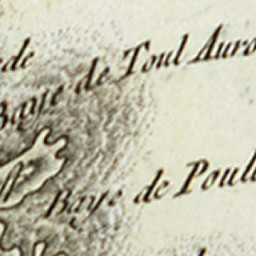 de
Baye de Toul Auro
Baye de Poul